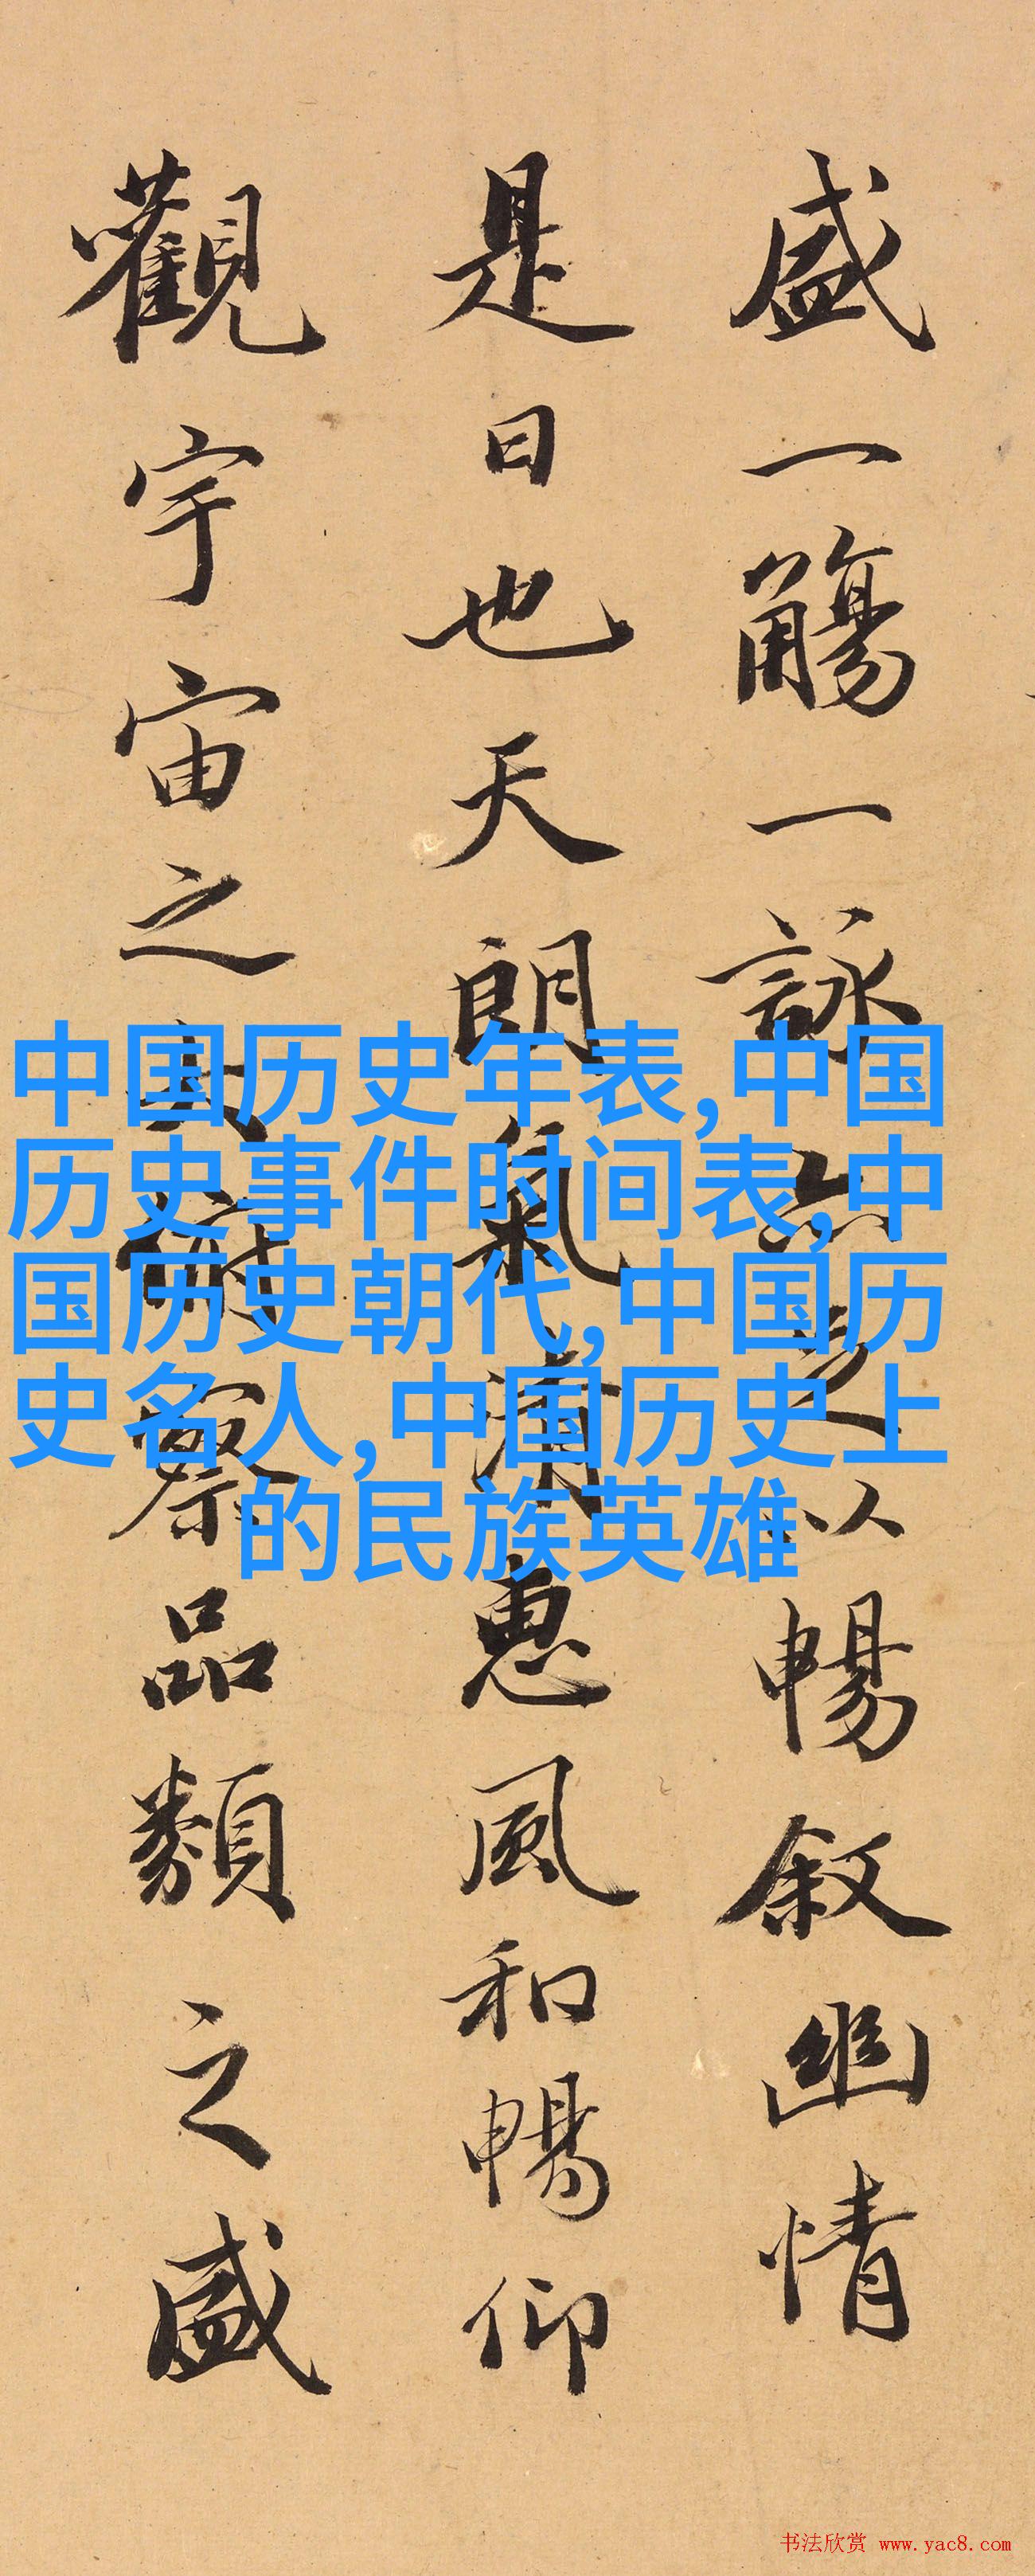 盛一觴一詠亦足以暢叙幽情
是日也天朗氣清惠風和暢仰
觀宇宙之大俯察品類之盛
中国历史年表,中国
历史事件时间表,中
国历史朝代,中国历
史名人,中国历史上
的民族英雄
书法欣赏 www.yac8.com